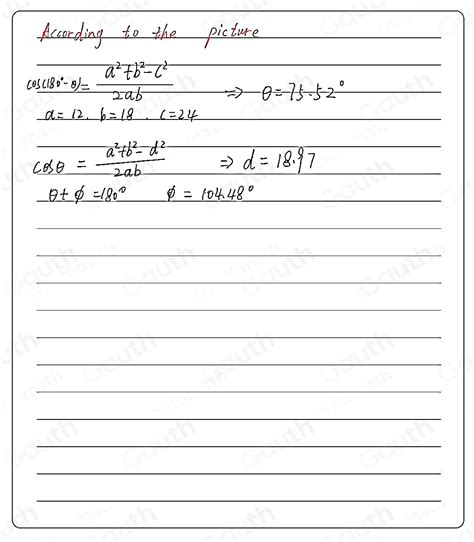 According to the picture
cos(180°-θ) = (a²+b²-c²)/(2ab) ⇒ θ = 75.52°
a = 12. b = 18. c = 24
cosθ = (a²+b²-d²)/(2ab) ⇒ d = 18.97
θ + φ = 180° φ = 104.48°